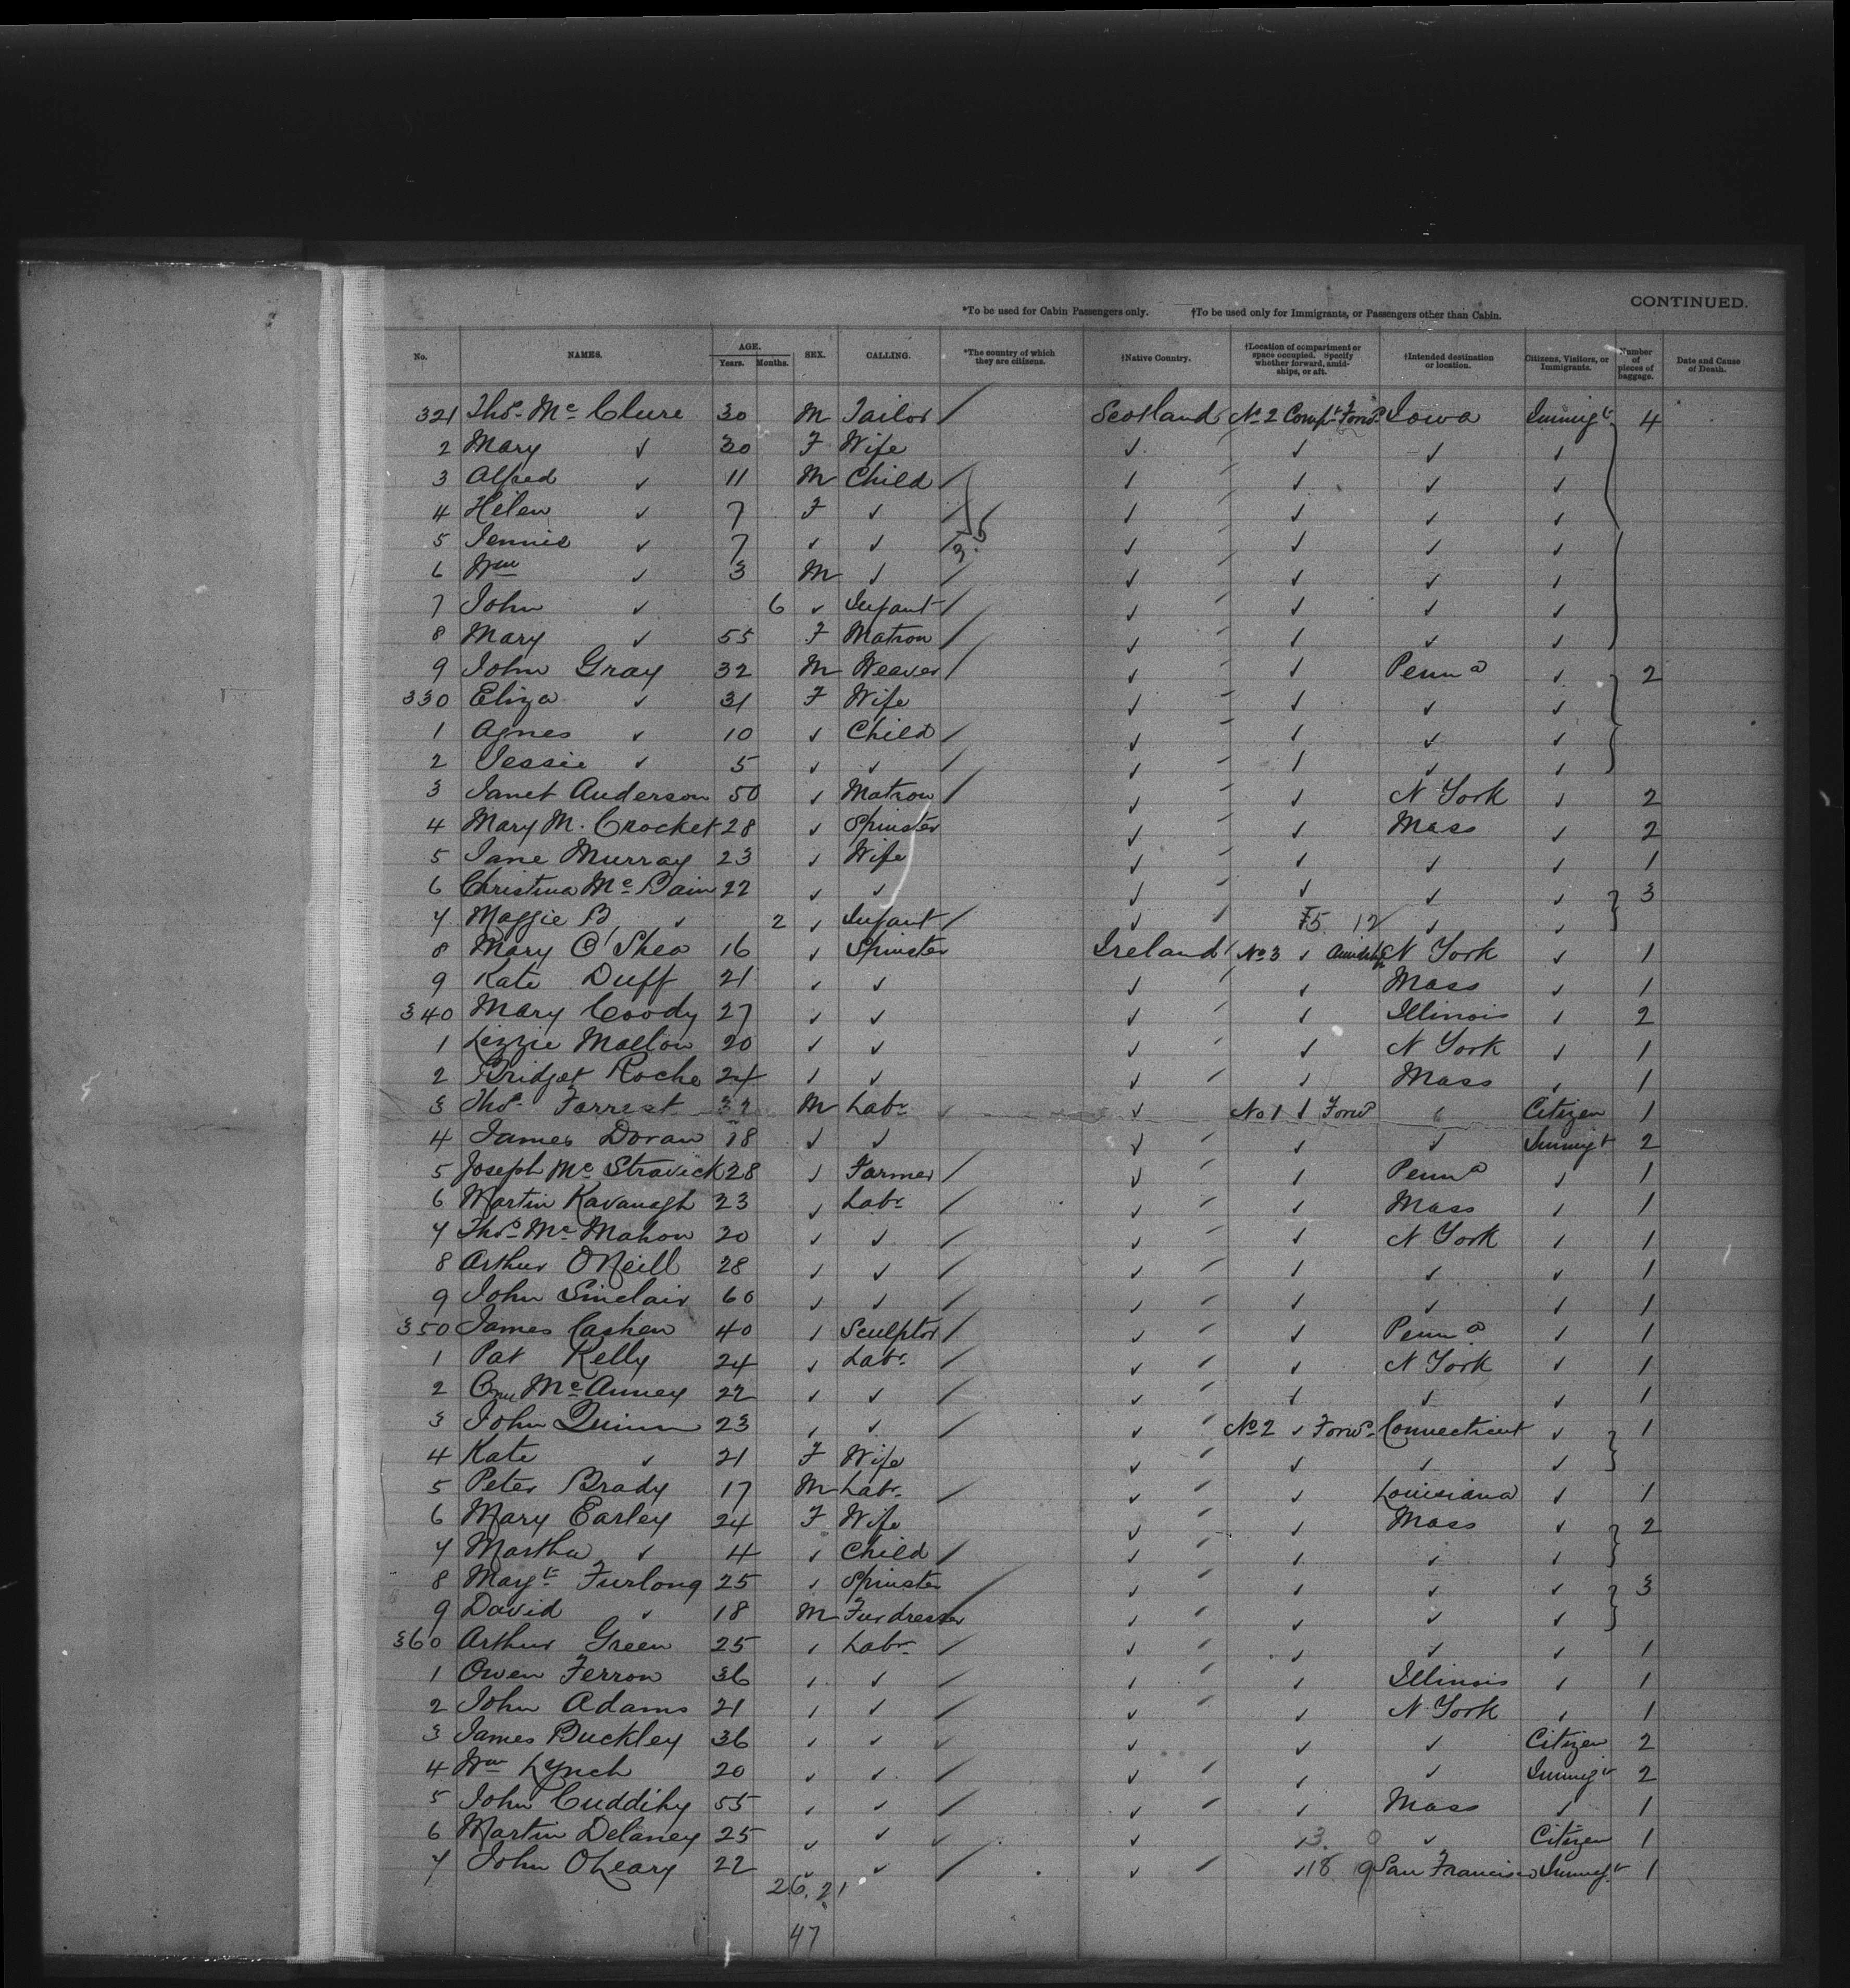 CONTINUED.
*To be used for Cabin Passengers only. †To be used only for Immigrants, or Passengers other than Cabin.
No. NAMES. AGE. Years. Months. SEX. CALLING. *The country of which they are citizens. †Native Country. †Location of compartment or space occupied. Specify whether forward, amidships, or aft. †Intended destination or location. Citizens, Visitors, or Immigrants. Number of pieces of baggage. Date and Cause of Death.
321 Thos. Mc Clure 30 M Tailor / Scotland No 2 Compt Forwd Iowa Immigt 4
2 Mary ✓ 30 F Wife ✓ ✓ ✓ ✓
3 Alfred ✓ 11 M Child / ✓ ✓ ✓ ✓
4 Helen ✓ 7 F ✓ / ✓ ✓ ✓ ✓
5 Jennie ✓ 7 ✓ ✓ / ✓ ✓ ✓ ✓
6 Wm ✓ 3 M ✓ / ✓ ✓ ✓ ✓
7 John ✓ 6 ✓ Infant / ✓ ✓ ✓ ✓
8 Mary ✓ 55 F Matron / ✓ ✓ ✓ ✓
9 John Gray 32 M Weaver / ✓ ✓ Penna ✓ 2
330 Eliza ✓ 31 F Wife ✓ ✓ ✓ ✓
1 Agnes ✓ 10 ✓ Child / ✓ ✓ ✓ ✓
2 Jessie ✓ 5 ✓ ✓ / ✓ ✓ ✓ ✓
3 Janet Anderson 50 ✓ Matron / ✓ ✓ N York ✓ 2
4 Mary M. Crocket 28 ✓ Spinster ✓ ✓ Mass ✓ 2
5 Jane Murray 23 ✓ Wife ✓ ✓ ✓ ✓ 1
6 Christina Mc Bain 22 ✓ ✓ ✓ ✓ ✓ ✓ 3
7 Maggie B ✓ 2 ✓ Infant / ✓ 5 12 ✓ ✓
8 Mary O'Shea 16 ✓ Spinster Ireland No 3 ✓ Amidships N York ✓ 1
9 Kate Duff 21 ✓ ✓ ✓ ✓ Mass ✓ 1
340 Mary Coody 27 ✓ ✓ ✓ ✓ Illinois ✓ 2
1 Lizzie Mallon 20 ✓ ✓ ✓ ✓ N York ✓ 1
2 Bridget Roche 24 ✓ ✓ ✓ ✓ Mass ✓ 1
3 Thos. Forrest 32 M Labr ✓ ✓ No 1 ✓ Forwd ✓ Citizen 1
4 James Doran 18 ✓ ✓ ✓ ✓ ✓ Immigt 2
5 Joseph Mc Stravick 28 ✓ Farmer / ✓ ✓ Penna ✓ 1
6 Martin Kavanagh 23 ✓ Labr / ✓ ✓ Mass ✓ 1
7 Thos. Mc Mahon 20 ✓ ✓ / ✓ ✓ N York ✓ 1
8 Arthur O'Neill 28 ✓ ✓ / ✓ ✓ ✓ ✓ 1
9 John Sinclair 60 ✓ ✓ / ✓ ✓ ✓ ✓ 1
350 James Cashen 40 ✓ Sculptor / ✓ ✓ Penna ✓ 1
1 Pat Kelly 24 ✓ Labr / ✓ ✓ N York ✓ 1
2 Mc Anney 22 ✓ ✓ / ✓ ✓ ✓ ✓ 1
3 John Quinn 23 ✓ ✓ / ✓ No 2 ✓ Forwd Connecticut ✓ 1
4 Kate ✓ 21 F Wife ✓ ✓ ✓ ✓
5 Peter Brady 17 M Labr / ✓ ✓ Louisiana ✓ 1
6 Mary Earley 24 F Wife ✓ ✓ Mass ✓ 2
7 Martha ✓ 4 ✓ Child / ✓ ✓ ✓ ✓
8 Magt Furlong 25 ✓ Spinster / ✓ ✓ ✓ ✓ 3
9 David ✓ 18 M Fur dresser / ✓ ✓ ✓ ✓
360 Arthur Green 25 ✓ Labr / ✓ ✓ ✓ ✓ 1
1 Owen Ferron 36 ✓ ✓ / ✓ ✓ Illinois ✓ 1
2 John Adams 21 ✓ ✓ / ✓ ✓ N York ✓ 1
3 James Buckley 36 ✓ ✓ ✓ ✓ ✓ ✓ Citizen 2
4 Wm Lynch 20 ✓ ✓ / ✓ ✓ ✓ Immigt 2
5 John Cuddihy 55 ✓ ✓ / ✓ ✓ Mass ✓ 1
6 Martin Delaney 25 ✓ ✓ ✓ ✓ ✓ 3. 0 ✓ Citizen 1
7 John O'Leary 22 ✓ ✓ / ✓ ✓ 18 9 San Francisco Immigt 1
26. 21
47